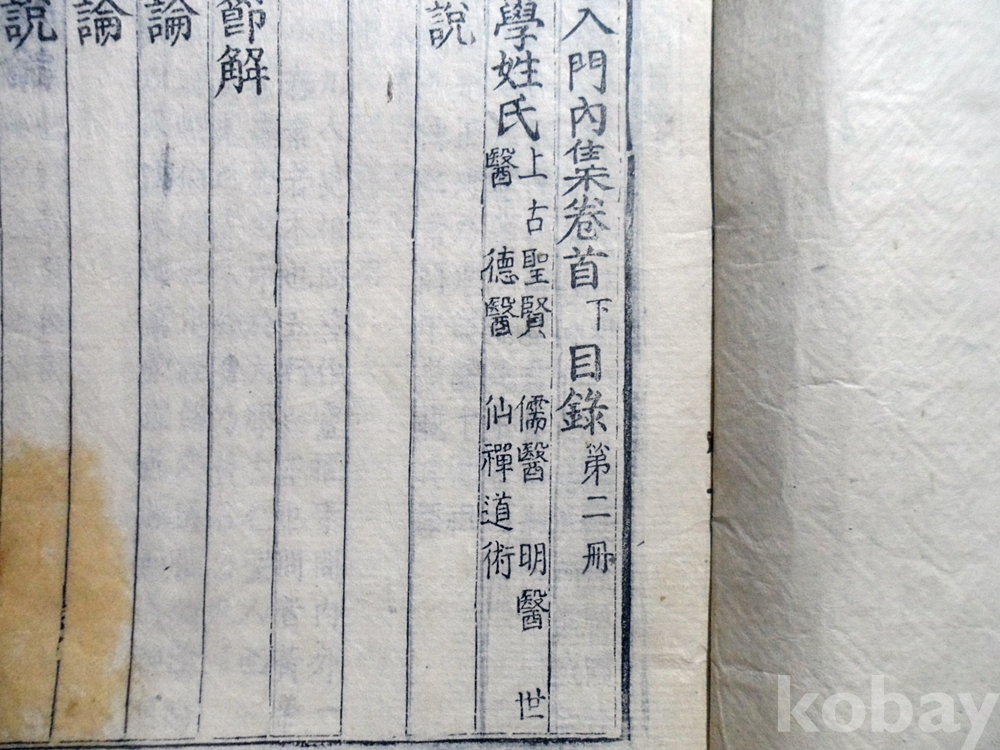 入門內集卷首下目錄第二冊
學姓氏上古聖賢 儒醫 明醫 世
醫 德醫 仙禪道術
說
節解
論
論
說
kobay